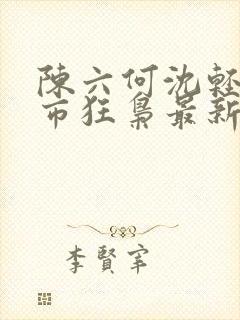 陳六何沈輕
市狂梟最新
李賢宰